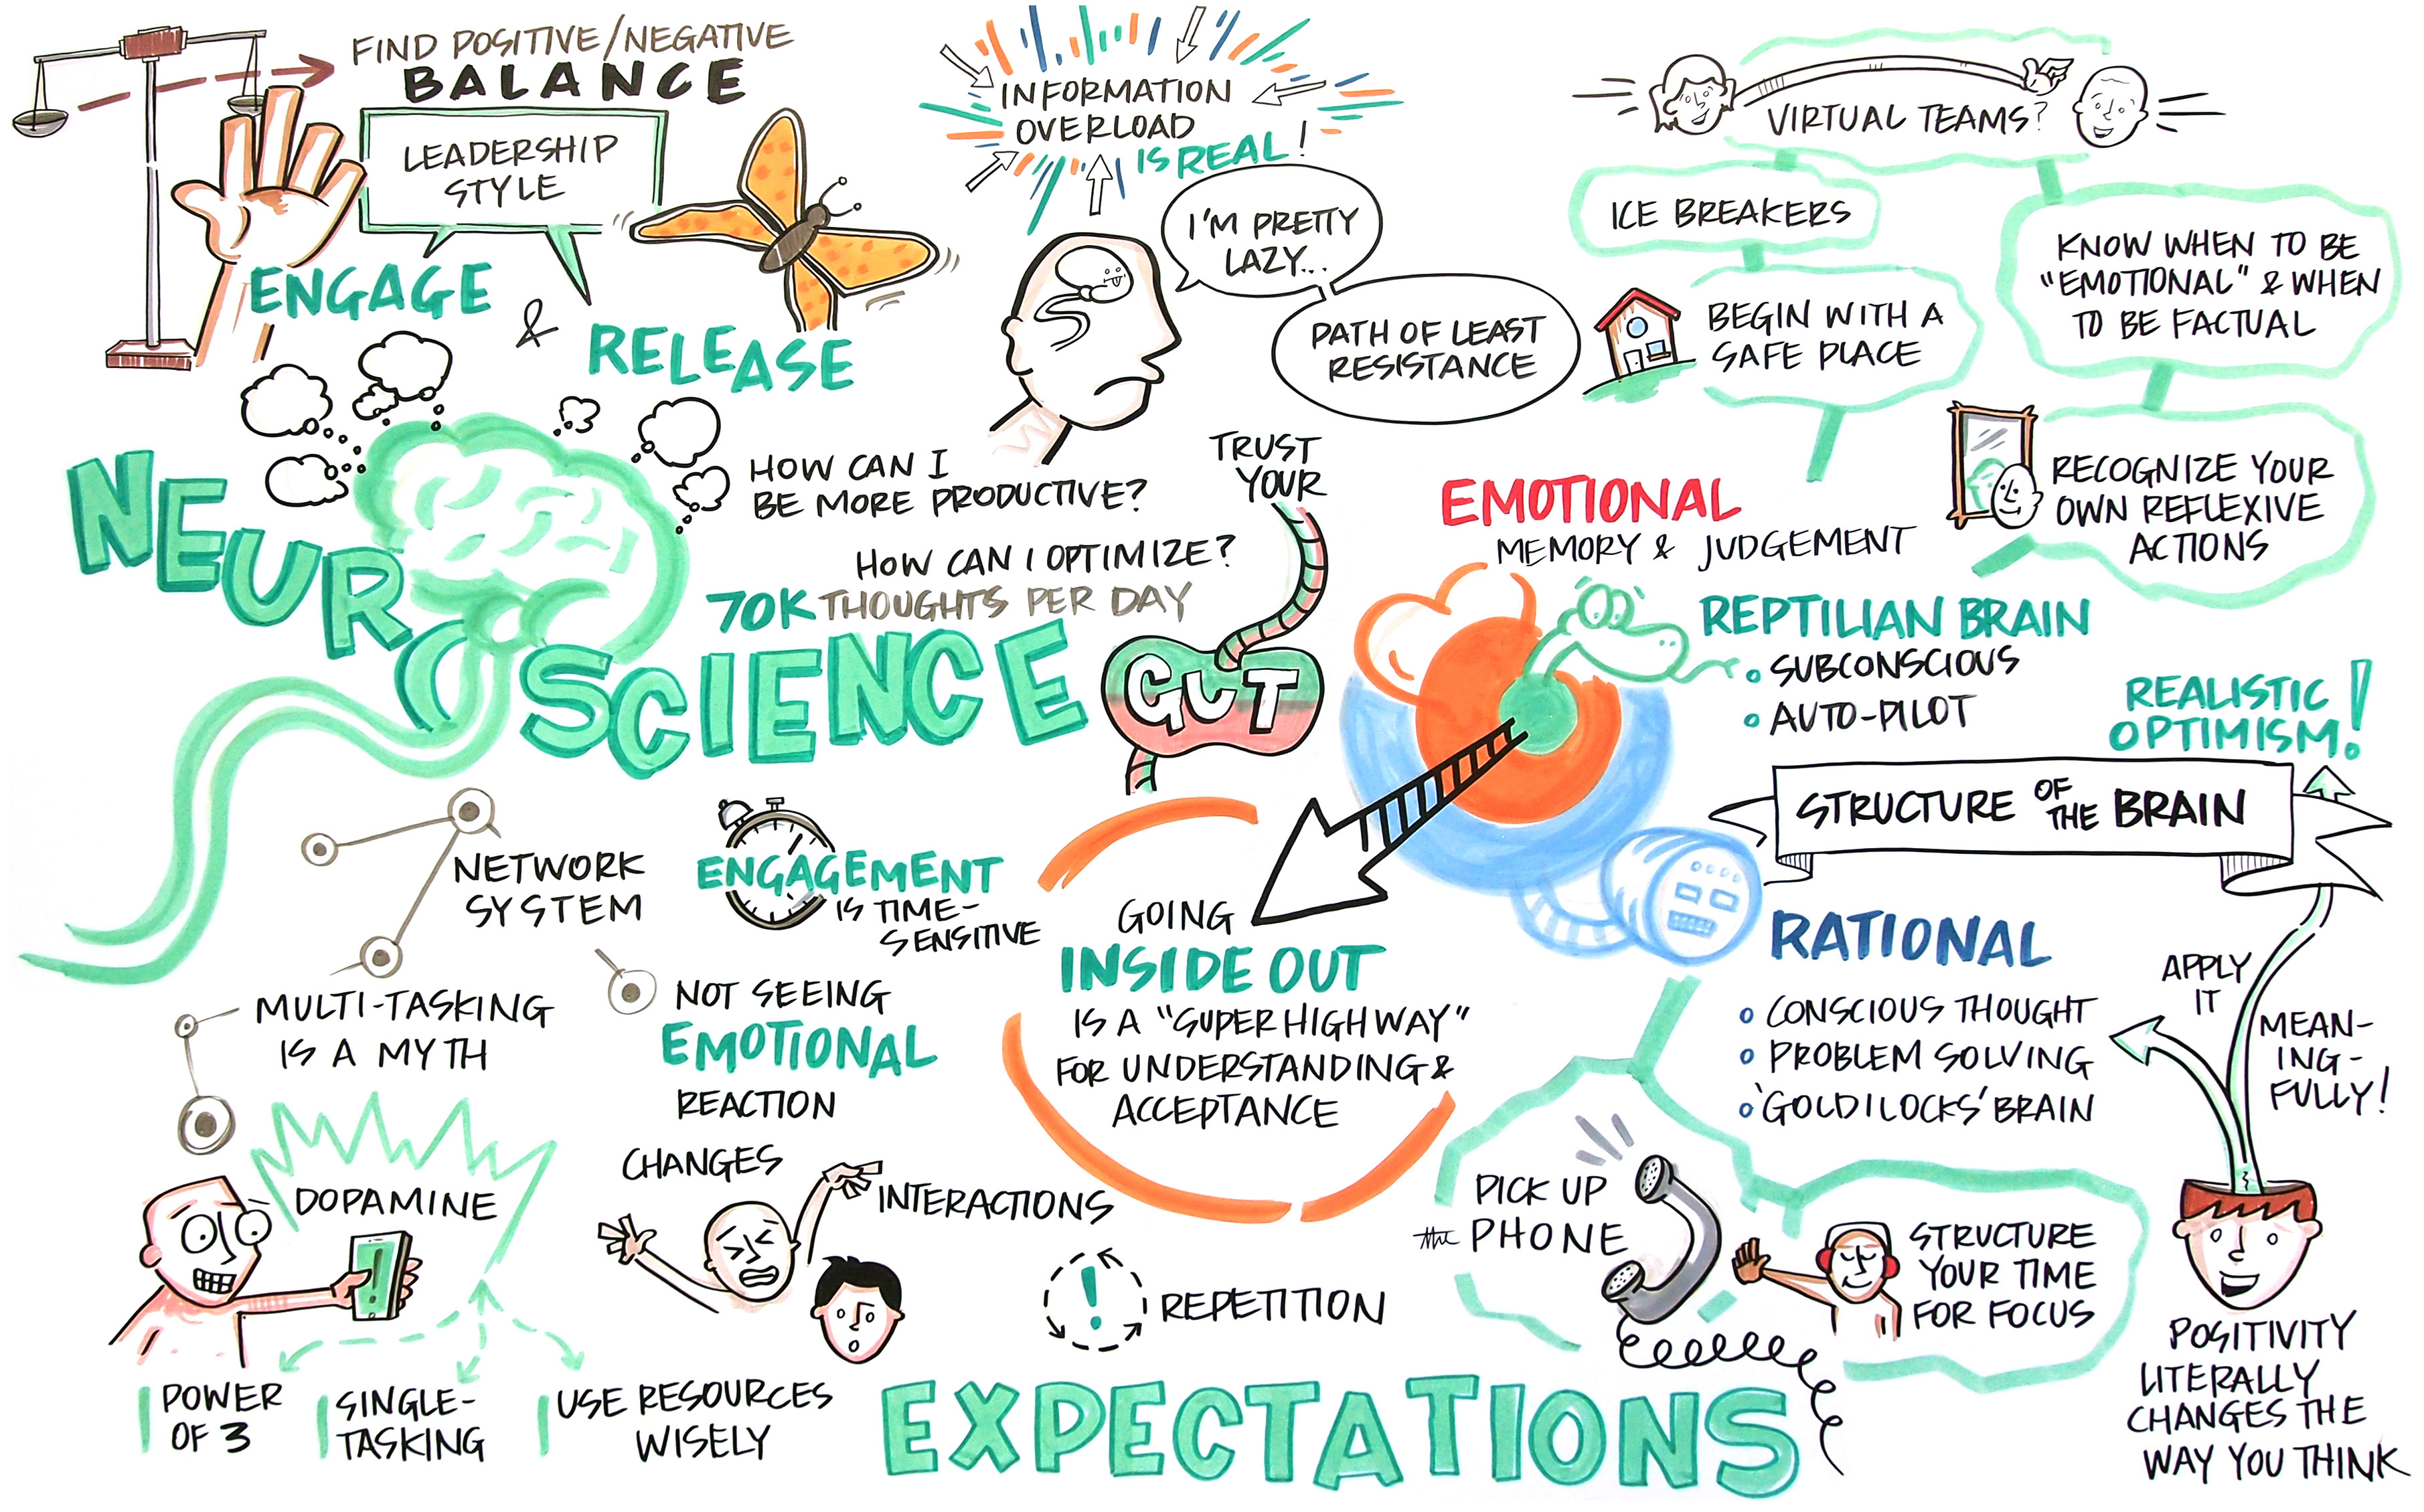 FIND POSITIVE/NEGATIVE
BALANCE
LEADERSHIP
STYLE
ENGAGE
&
RELEASE
INFORMATION
OVERLOAD
IS REAL!
I'M PRETTY
LAZY...
PATH OF LEAST
RESISTANCE
VIRTUAL TEAMS?
ICE BREAKERS
BEGIN WITH A
SAFE PLACE
KNOW WHEN TO BE
"EMOTIONAL" & WHEN
TO BE FACTUAL
RECOGNIZE YOUR
OWN REFLEXIVE
ACTIONS
NEURO
SCIENCE
HOW CAN I
BE MORE PRODUCTIVE?
HOW CAN I OPTIMIZE?
70K THOUGHTS PER DAY
TRUST
YOUR
GUT
EMOTIONAL
MEMORY & JUDGEMENT
REPTILIAN BRAIN
SUBCONSCIOUS
AUTO-PILOT
REALISTIC
OPTIMISM!
STRUCTURE OF THE BRAIN
RATIONAL
CONSCIOUS THOUGHT
PROBLEM SOLVING
'GOLDILOCKS' BRAIN
APPLY
IT
MEAN-
ING-
FULLY!
POSITIVITY
LITERALLY
CHANGES THE
WAY YOU THINK
NETWORK
SYSTEM
MULTI-TASKING
IS A MYTH
ENGAGEMENT
IS TIME-
SENSITIVE
NOT SEEING
EMOTIONAL
REACTION
CHANGES
INTERACTIONS
GOING
INSIDE OUT
IS A "SUPER HIGHWAY"
FOR UNDERSTANDING &
ACCEPTANCE
DOPAMINE
!
POWER
OF 3
SINGLE-
TASKING
USE RESOURCES
WISELY
! REPETITION
PICK UP
the PHONE
STRUCTURE
YOUR TIME
FOR FOCUS
EXPECTATIONS